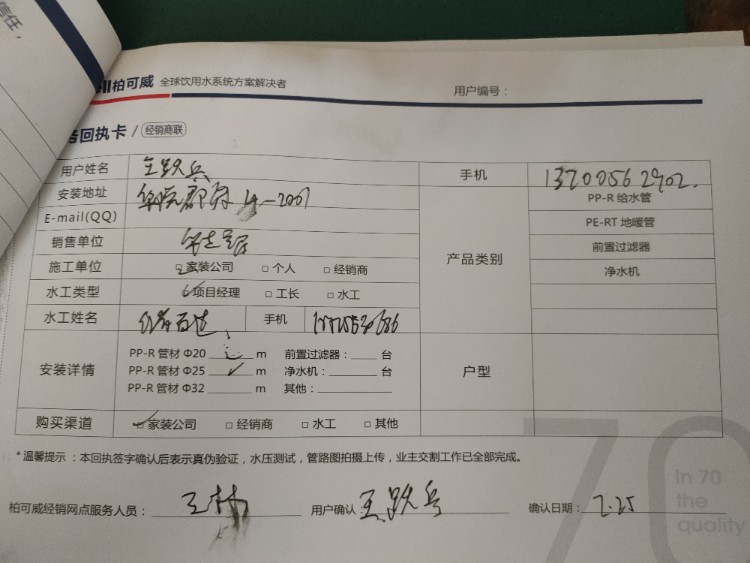 信任,
柏可威 全球饮用水系统方案解决者
用户编号：
回执卡 / 经销商联
用户姓名 王跃兵 手机 13700562902.
安装地址 郡府 -2001 PP-R 给水管
E-mail(QQ) PE-RT 地暖管
销售单位 产品类别 前置过滤器
施工单位 □家装公司 □个人 □经销商 净水机
水工类型 □项目经理 □工长 □水工
水工姓名 手机
安装详情 PP-R 管材 Φ20 ____ m 前置过滤器：____ 台 户型
PP-R 管材 Φ25 ____ m 净水机：____ 台
PP-R 管材 Φ32 ____ m 其他：____
购买渠道 □家装公司 □经销商 □水工 □其他
*温馨提示：本回执签字确认后表示真伪验证，水压测试，管路图拍摄上传，业主交割工作已全部完成。
70
In 70
the
quality
柏可威经销网点服务人员：王林 用户确认 王跃兵 确认日期：7.25